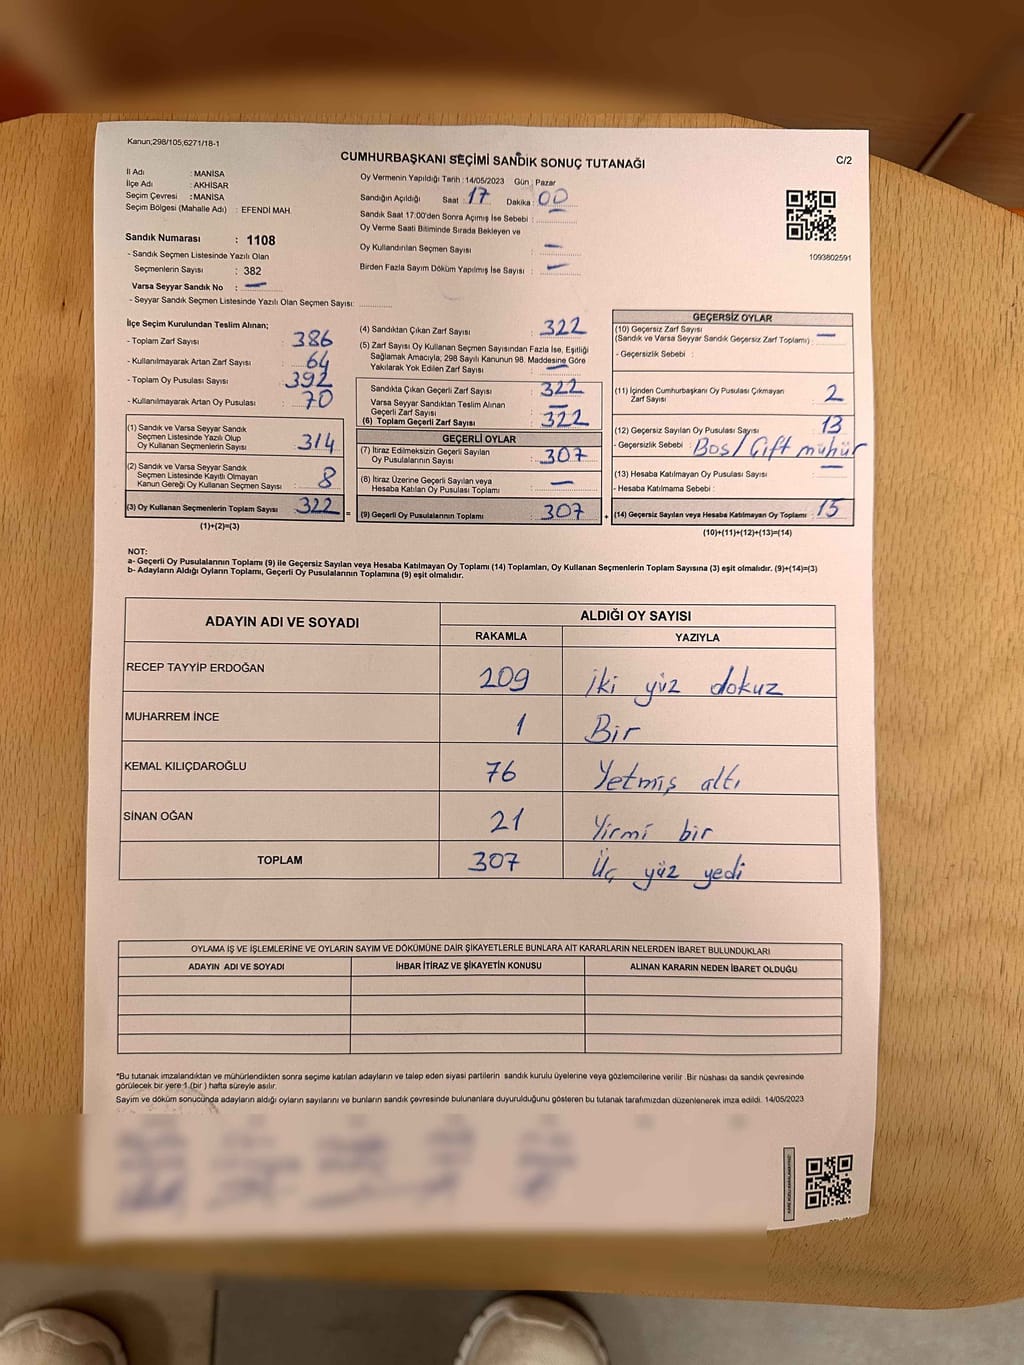 Kanun;298/105,6271/18-1
CUMHURBAŞKANI SEÇİMİ SANDIK SONUÇ TUTANAĞI
C/2
İl Adı : MANİSA
İlçe Adı : AKHİSAR
Seçim Çevresi : MANİSA
Seçim Bölgesi (Mahalle Adı) : EFENDİ MAH.
Oy Vermenin Yapıldığı Tarih :14/05/2023 Gün : Pazar
Sandığın Açıldığı Saat : 17 Dakika : 00
Sandık Saat 17:00'den Sonra Açımış İse Sebebi :
Oy Verme Saati Bitiminde Sırada Bekleyen ve
Oy Kullandırılan Seçmen Sayısı : —
Birden Fazla Sayım Döküm Yapılmış İse Sayısı : —
1093802591
Sandık Numarası : 1108
- Sandık Seçmen Listesinde Yazılı Olan
Seçmenlerin Sayısı : 382
Varsa Seyyar Sandık No : —
- Seyyar Sandık Seçmen Listesinde Yazılı Olan Seçmen Sayısı:
İlçe Seçim Kurulundan Teslim Alınan;
- Toplam Zarf Sayısı : 386
- Kullanılmayarak Artan Zarf Sayısı : 64
- Toplam Oy Pusulası Sayısı : 392
- Kullanılmayarak Artan Oy Pusulası : 70
(1) Sandık ve Varsa Seyyar Sandık
Seçmen Listesinde Yazılı Olup
Oy Kullanan Seçmenlerin Sayısı : 314
(2) Sandık ve Varsa Seyyar Sandık
Seçmen Listesinde Kayıtlı Olmayan
Kanun Gereği Oy Kullanan Seçmen Sayısı : 8
(3) Oy Kullanan Seçmenlerin Toplam Sayısı : 322 =
(1)+(2)=(3)
(4) Sandıktan Çıkan Zarf Sayısı : 322
(5) Zarf Sayısı Oy Kullanan Seçmen Sayısından Fazla İse, Eşitliği
Sağlamak Amacıyla; 298 Sayılı Kanunun 98. Maddesine Göre
Yakılarak Yok Edilen Zarf Sayısı : —
Sandıkta Çıkan Geçerli Zarf Sayısı : 322
Varsa Seyyar Sandıktan Teslim Alınan
Geçerli Zarf Sayısı : —
(6) Toplam Geçerli Zarf Sayısı : 322
GEÇERLİ OYLAR
(7) İtiraz Edilmeksizin Geçerli Sayılan
Oy Pusulalarının Sayısı : 307
(8) İtiraz Üzerine Geçerli Sayılan veya
Hesaba Katılan Oy Pusulası Toplamı : —
(9) Geçerli Oy Pusulalarının Toplamı : 307 +
GEÇERSİZ OYLAR
(10) Geçersiz Zarf Sayısı
(Sandık ve Varsa Seyyar Sandık Geçersiz Zarf Toplamı) : —
- Geçersizlik Sebebi :
(11) İçinden Cumhurbaşkanı Oy Pusulası Çıkmayan
Zarf Sayısı : 2
(12) Geçersiz Sayılan Oy Pusulası Sayısı : 13
- Geçersizlik Sebebi : Boş/Çift mühür
(13) Hesaba Katılmayan Oy Pusulası Sayısı : —
- Hesaba Katılmama Sebebi :
(14) Geçersiz Sayılan veya Hesaba Katılmayan Oy Toplamı : 15
(10)+(11)+(12)+(13)=(14)
NOT:
a- Geçerli Oy Pusulalarının Toplamı (9) ile Geçersiz Sayılan veya Hesaba Katılmayan Oy Toplamı (14) Toplamları, Oy Kullanan Seçmenlerin Toplam Sayısına (3) eşit olmalıdır. (9)+(14)=(3)
b- Adayların Aldığı Oyların Toplamı, Geçerli Oy Pusulalarının Toplamına (9) eşit olmalıdır.
ADAYIN ADI VE SOYADI ALDIĞI OY SAYISI
RAKAMLA YAZIYLA
RECEP TAYYİP ERDOĞAN 209 iki yüz dokuz
MUHARREM İNCE 1 Bir
KEMAL KILIÇDAROĞLU 76 Yetmiş altı
SİNAN OĞAN 21 Yirmi bir
TOPLAM 307 Üç yüz yedi
OYLAMA İŞ VE İŞLEMLERİNE VE OYLARIN SAYIM VE DÖKÜMÜNE DAİR ŞİKAYETLERLE BUNLARA AİT KARARLARIN NELERDEN İBARET BULUNDUKLARI
ADAYIN ADI VE SOYADI İHBAR İTİRAZ VE ŞİKAYETİN KONUSU ALINAN KARARIN NEDEN İBARET OLDUĞU
*Bu tutanak imzalandıktan ve mühürlendikten sonra seçime katılan adayların ve talep eden siyasi partilerin sandık kurulu üyelerine veya gözlemcilerine verilir .Bir nüshası da sandık çevresinde
görülecek bir yere 1 (bir ) hafta süreyle asılır.
Sayım ve döküm sonucunda adayların aldığı oyların sayılarını ve bunların sandık çevresinde bulunanlara duyurulduğunu gösteren bu tutanak tarafımızdan düzenlenerek imza edildi. 14/05/2023